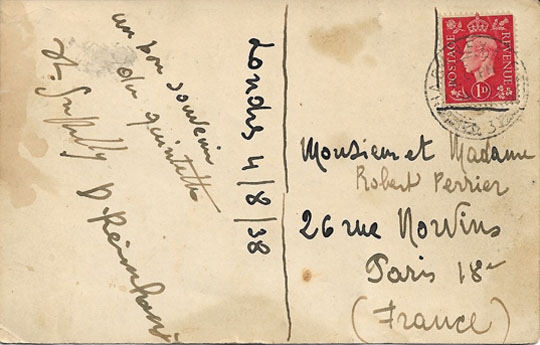 un bon souvenir
du quintette
St. Grappelly
D. Reinhardt
Londres 4/8/38
POSTAGE REVENUE
1D
Monsieur et Madame
Robert Perrier
26 rue Norvins
Paris 18e
(France)